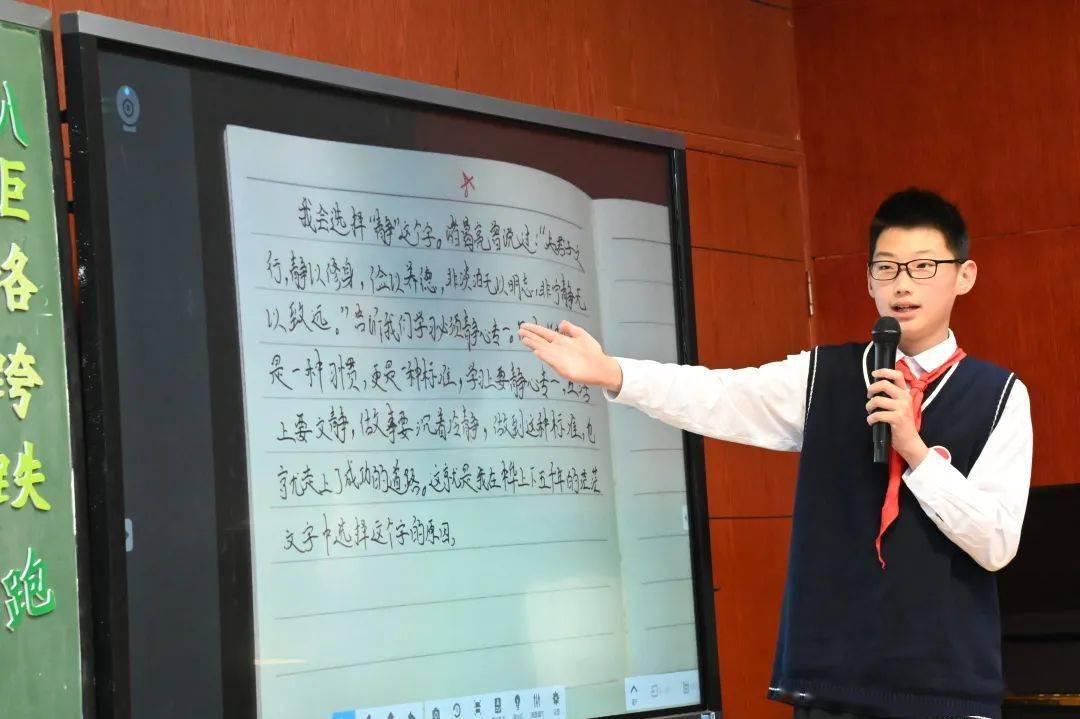 八
距
各
跨
跌
跑
我会选择“静”这个字。诸葛亮曾说过:“夫君子之
行,静以修身,俭以养德,非淡泊无以明志,非宁静无
以致远。”告诉我们学习必须静心专一。
是一种习惯,更是一种标准,学习上要静心专一,生活
上要文静,做事要沉着冷静,做到这种标准,也
就走上了成功的道路。这就是我在中华上下五千年的
文字中选择这个字的原因。